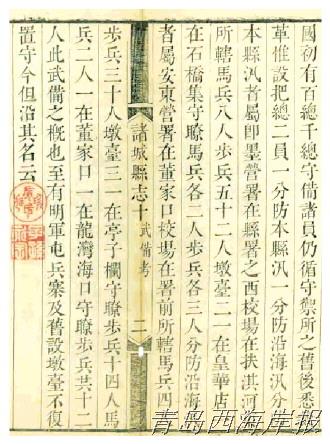 國初有百總千總守備諸員仍循守禦所之舊後悉
革惟設把總二員一分防本縣汛一分防沿海汛分
本縣汛者屬即墨營署在縣署之西校場在扶淇河
所轄馬兵八人步兵五十二人墩臺二一在皇華店
在石橋集守瞭馬兵各二人步兵各三人分防沿海
者屬安東營署在董家口校場在署前所轄馬兵四
諸城縣志十 武備考 二
步兵三十人墩臺三一在亭子欄守瞭步兵十四人馬
兵二人一在董家口一在龍灣海口守瞭步兵共十二
人此武備之槪也至有明軍屯兵寨及舊設墩臺不復
置守今但沿其名云
青岛西海岸报